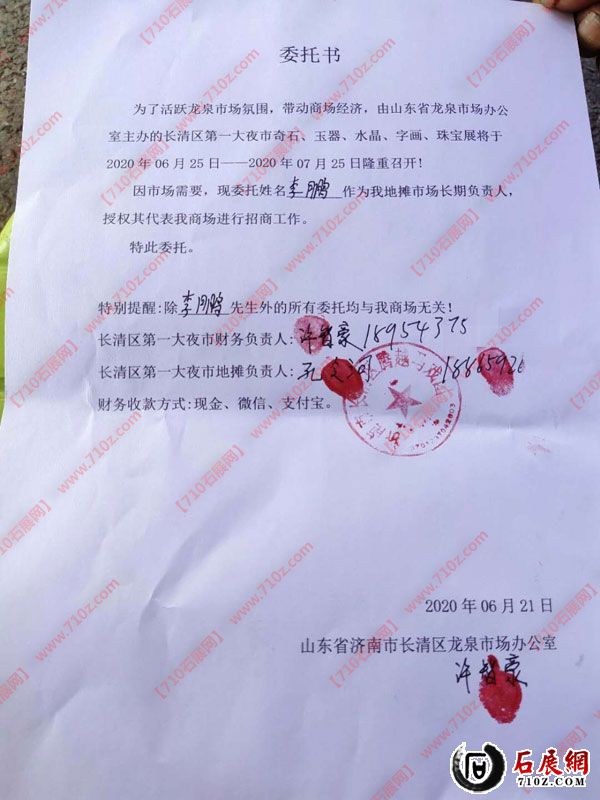 委托书
为了活跃龙泉市场氛围，带动商场经济，由山东省龙泉市场办公
室主办的长清区第一大夜市奇石、玉器、水晶、字画、珠宝展将于
2020年06月25日——2020年07月25日隆重召开!
因市场需要，现委托姓名李鹏作为我地摊市场长期负责人，
授权其代表我商场进行招商工作。
特此委托。
特别提醒:除李鹏先生外的所有委托均与我商场无关!
长清区第一大夜市财务负责人:许智豪18954375
长清区第一大夜市地摊负责人:孔
财务收款方式:现金、微信、支付宝。
2020年06月21日
山东省济南市长清区龙泉市场办公室
许智豪
【710石展网】www.710z.com
石展網
710Z.COM